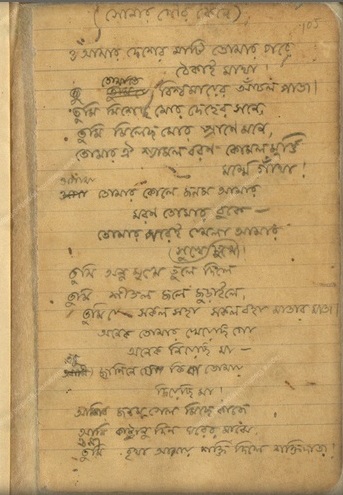 (সোনার মোর দেশ)
105
ও আমার দেশের মাটি তোমার পরে
ঠেকাই মাথা!
তোমাতে
বিশ্বমায়ের আঁচল পাতা।
তুমি মিশেছ মোর দেহের সনে,
তুমি মিলেছ মোর প্রাণে মনে,
তোমার ঐ শ্যামল বরণ কোমল মূর্তি
মর্ম্মে গাঁথা!
তোমার কোলে জনম আমার
মরণ তোমার বুকে—
তোমার পরেই খেলা আমার
দুঃখে সুখে।
তুমি অন্ন মুখে তুলে দিলে
তুমি শীতল জলে জুড়াইলে,
তুমি সকল সহা সকল বহা মাতার মাতা।
অনেক তোমার খেয়েছি গো
অনেক নিয়েছি মা—
তবু জানিনে যে কিবা তোমায়
দিয়েছি মা!
আমার জনম গেল মিছে কাজে
আমি কাটানু দিন ঘরের মাঝে
তুমি বৃথা আমায় শক্তি দিলে শক্তিদাতা!